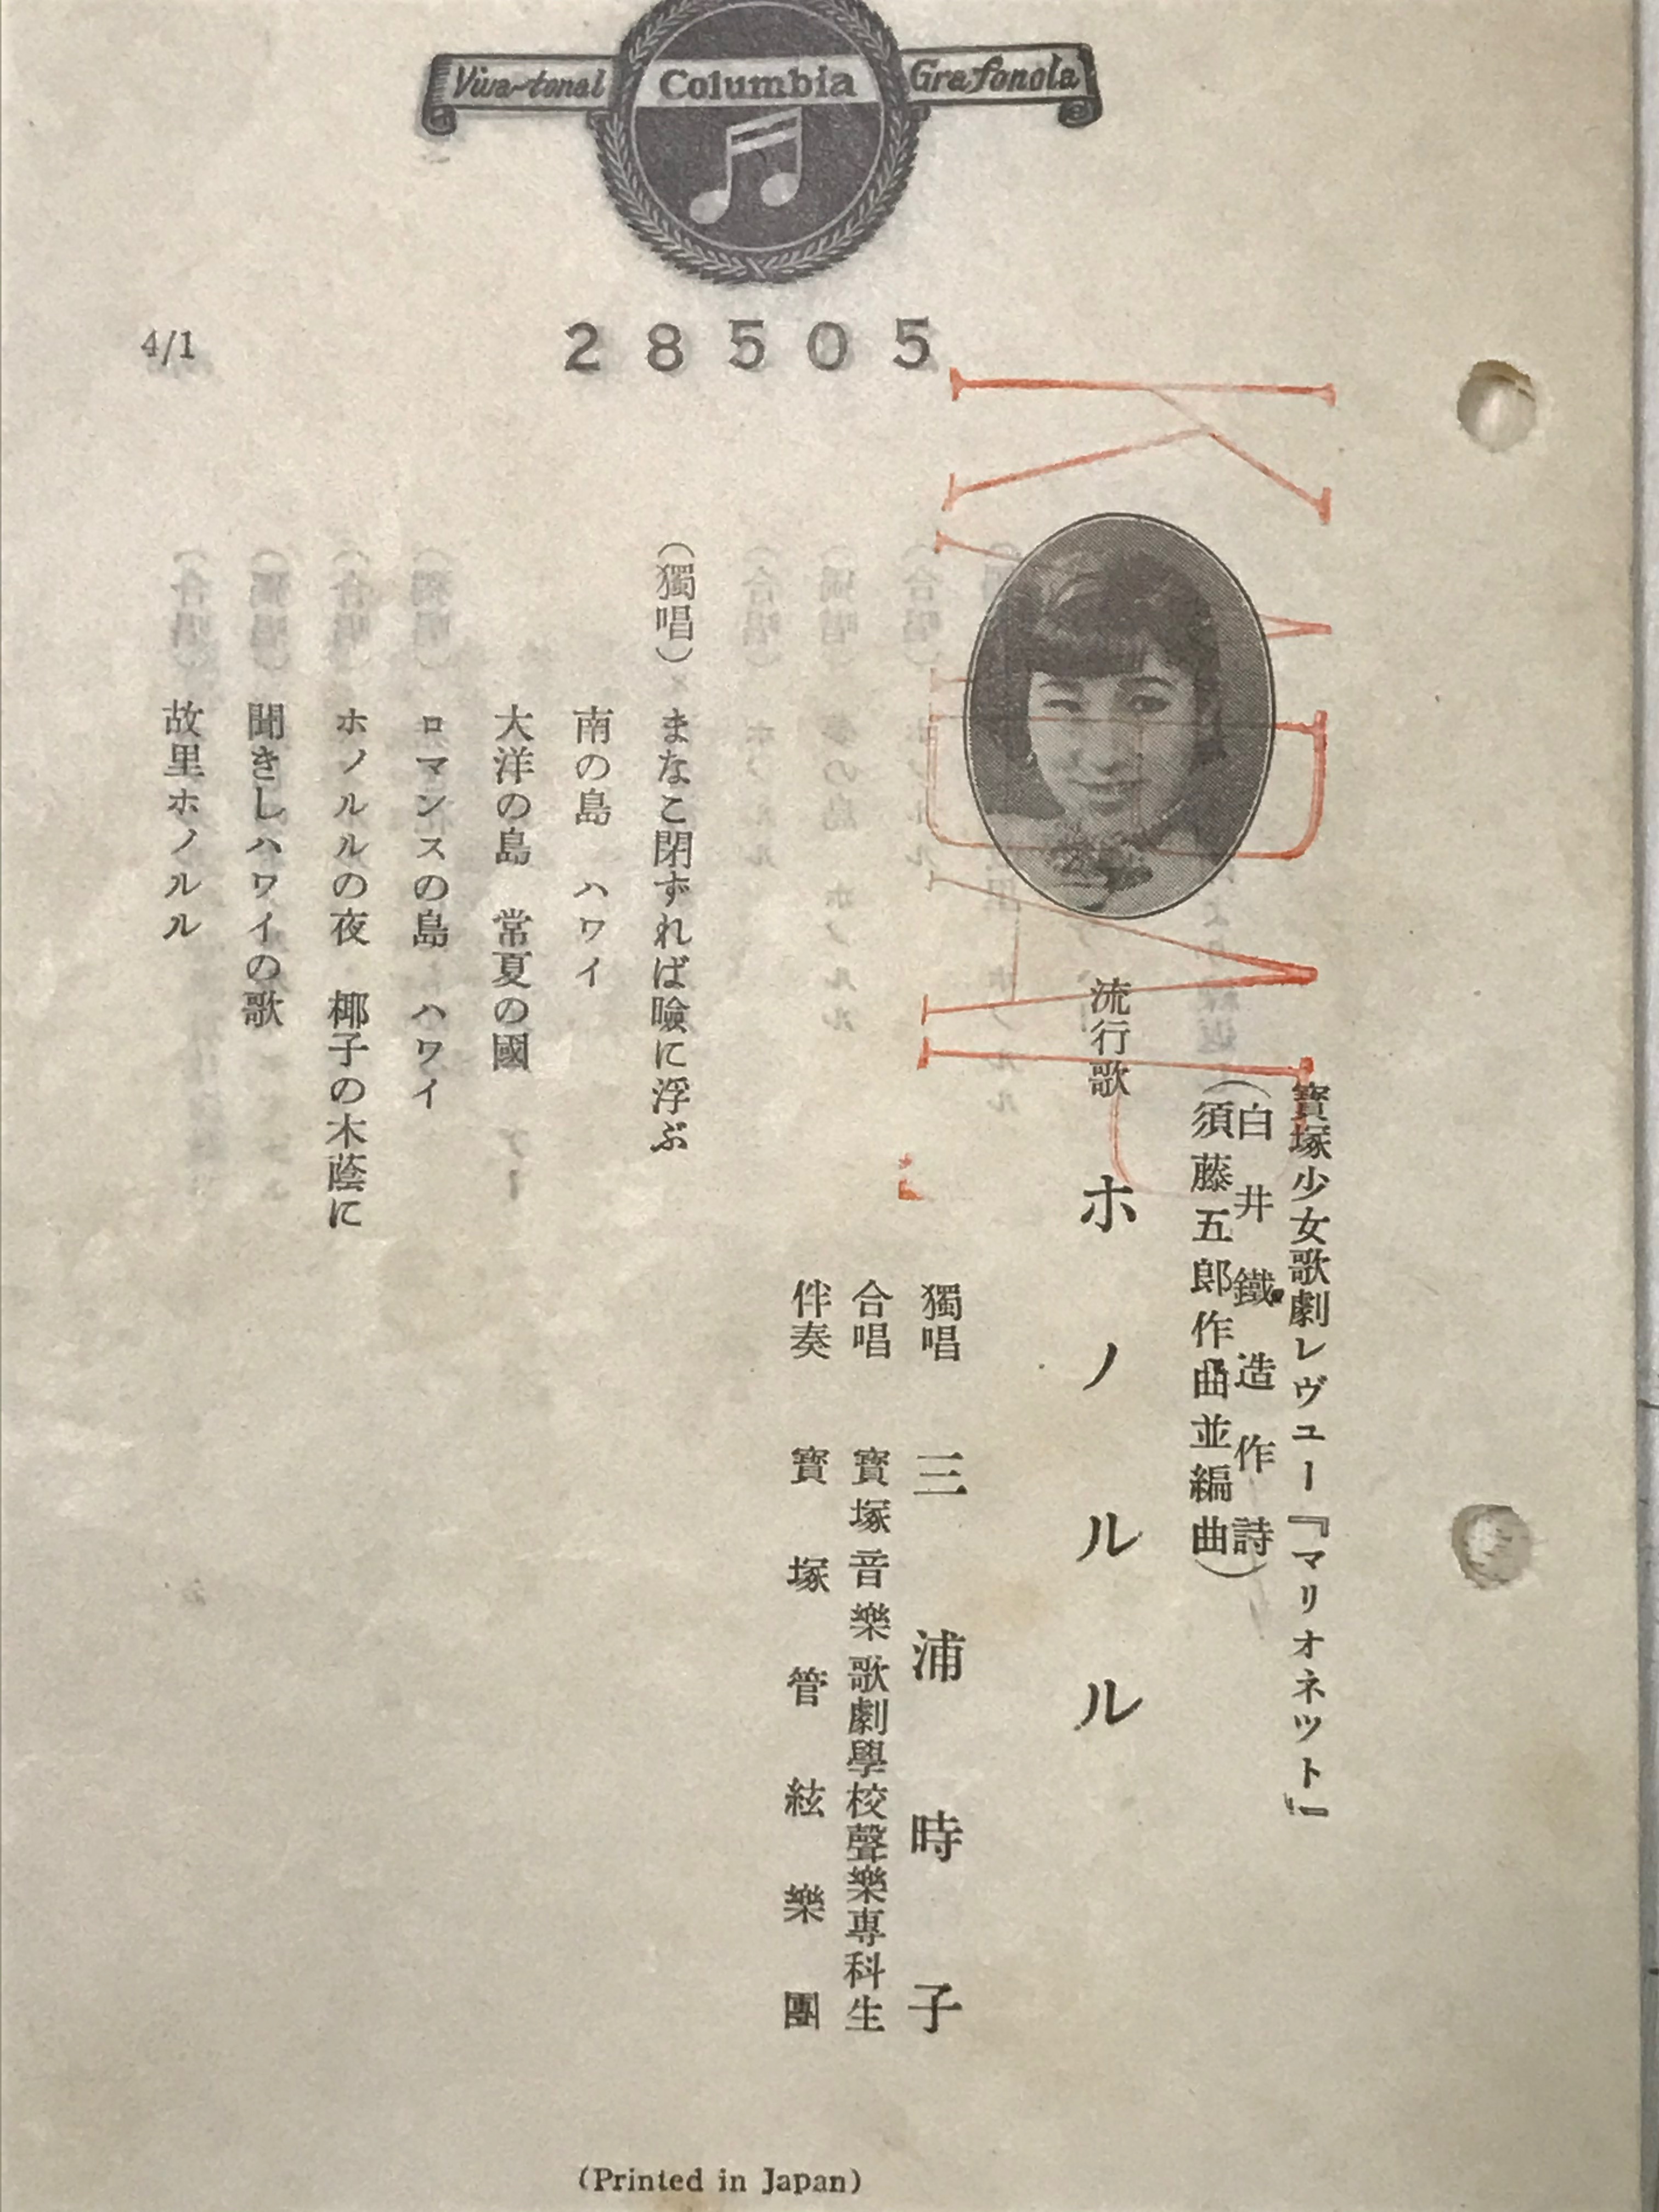 Viva-tonal Columbia Grafonola
28505
4/1
寶塚少女歌劇レヴユー『マリオネツト』
(白井鐵造作詩
須藤五郎作曲並編曲)
流行歌 ホノルル
獨唱 三浦時子
合唱 寶塚音樂歌劇學校聲樂專科生
伴奏 寶塚管絃樂團
(獨唱) まなこ閉ずれば喰に浮ぶ
南の島 ハワイ
大洋の島 常夏の國
ロマンスの島 ハワイ
ホノルルの夜 椰子の木蔭に
聞きしハワイの歌
故里ホノルル
(Printed in Japan)